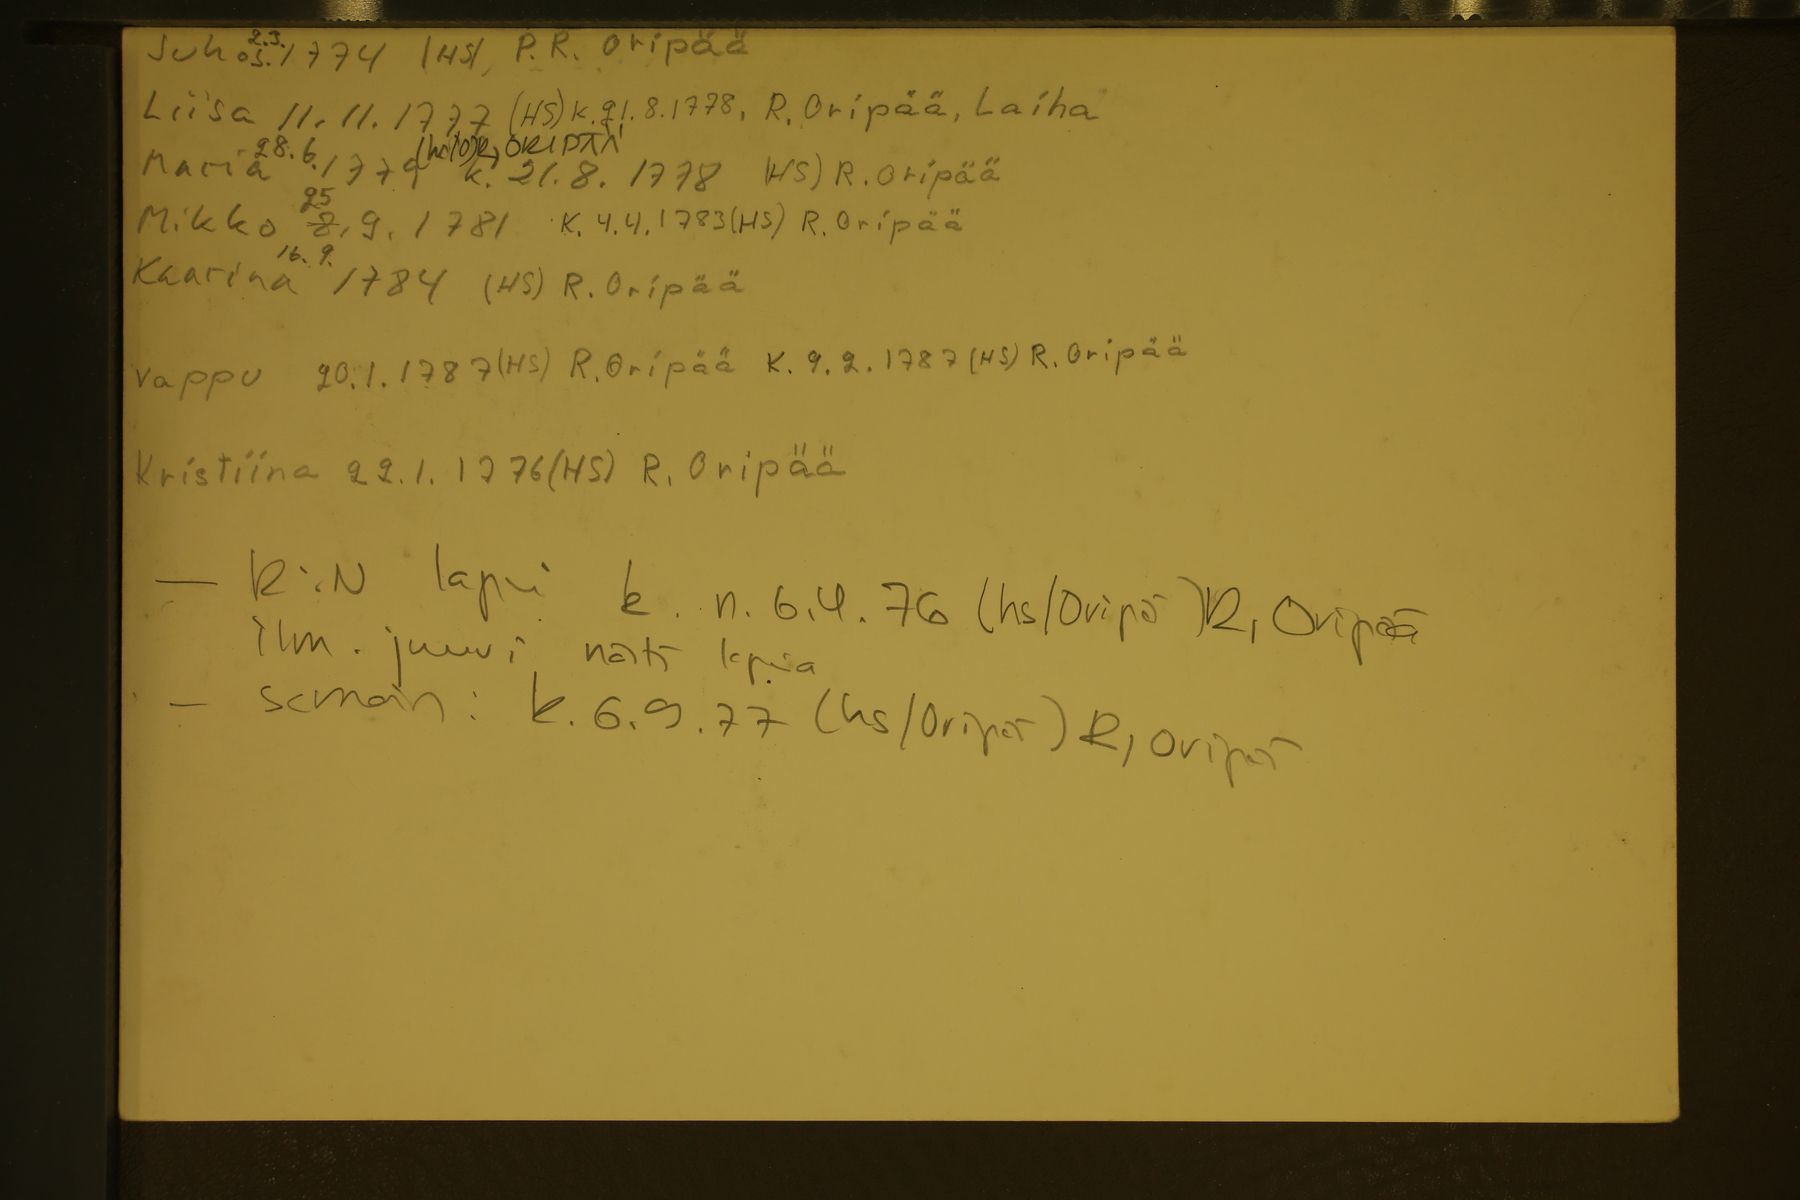 Juho 2.3. 1774 (HS), P.R. Oripää
Liisa 11.11.1777 (HS) K. 21.8.1778, R. Oripää, Laiha
Maria 28.6. 1779 R, ORIPÄÄ k. 21.8. 1778 (HS) R. Oripää
Mikko 25 8.9. 1781 K. 4.4.1783 (HS) R. Oripää
Kaarina 16.9. 1784 (HS) R. Oripää
Vappu 20.1.1787 (HS) R. Oripää K. 9.2.1787 (HS) R. Oripää
Kristiina 22.1.1776 (HS) R. Oripää
— R:N lapsi k. n. 6.4.76 (hs/Oripää) R, Oripää
ilm. juuri näitä lapsia
— samoin: k. 6.9.77 (hs/Oripää) R, Oripää